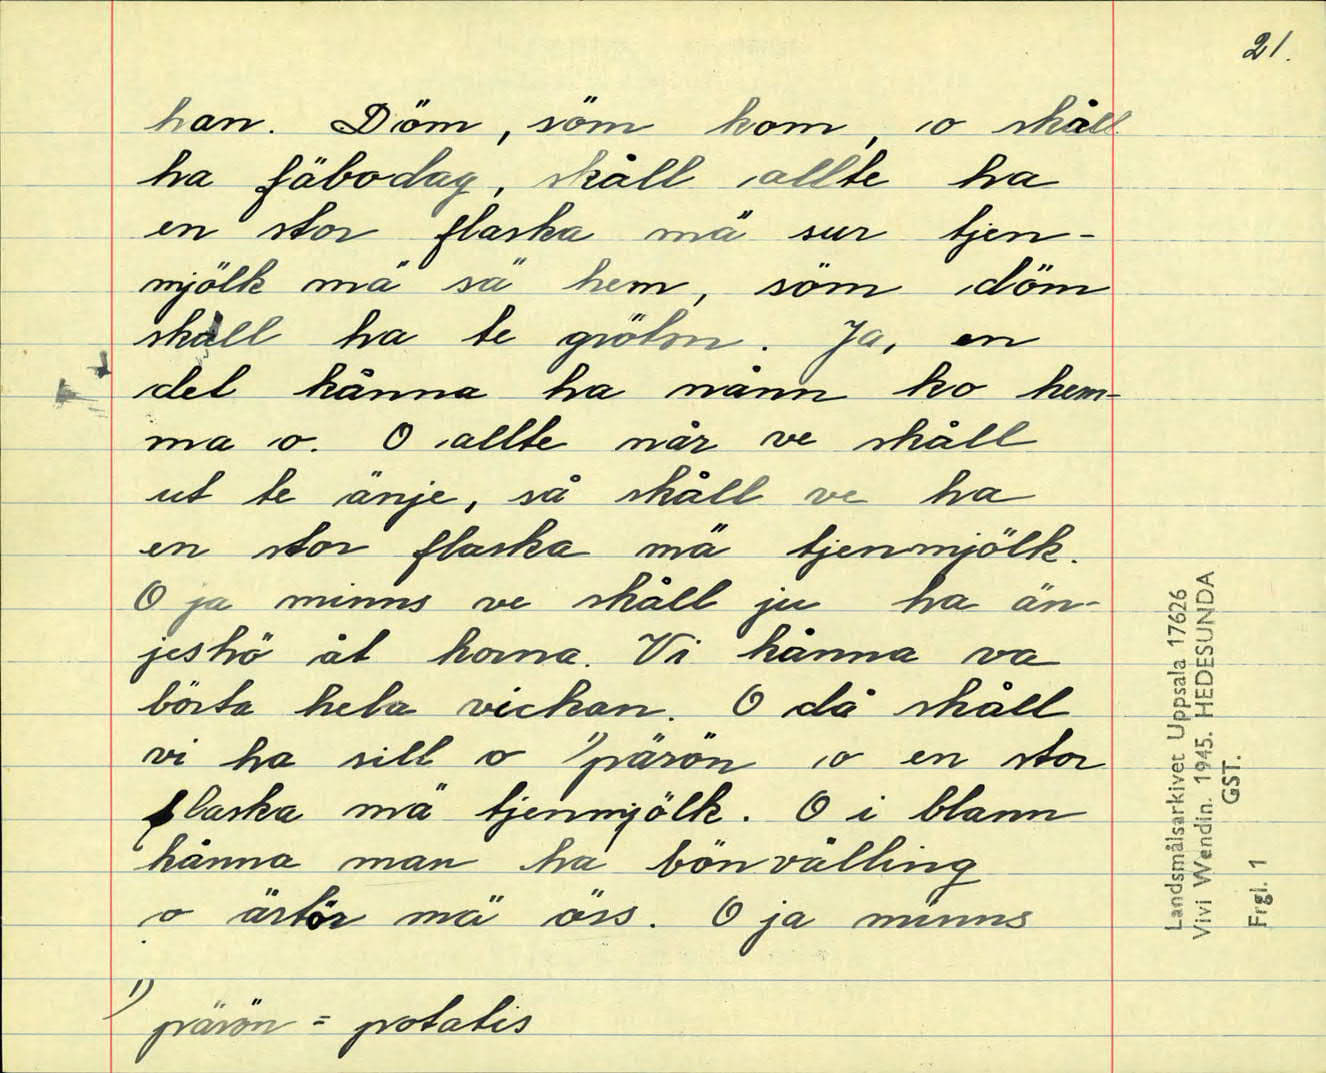 21.
han. Döm, söm kom, o skåll
ha fäbodag, skåll allte ha
en stor flaska mä sur tjen-
mjölk mä sä hem, söm döm
skåll ha te grötn. Ja, en
del kånna ha nånn ko hem-
ma o. O allte når ve skåll
ut te änje, så skåll ve ha
en stor flaska mä tjenmjölk.
O ja minns ve skåll ju ha än-
jeshö åt korna. Vi kånna va
börta hela vickan. O då skåll
vi ha sill o 1) pärön o en stor
flaska mä tjenmjölk. O i blann
kånna man ha bönvälling
o ärtör mä öss. O ja minns
1) pärön = potatis
Landsmålsarkivet Uppsala 17626
Vivi Wendin. 1945. HEDESUNDA
GST.
Frgl. 1